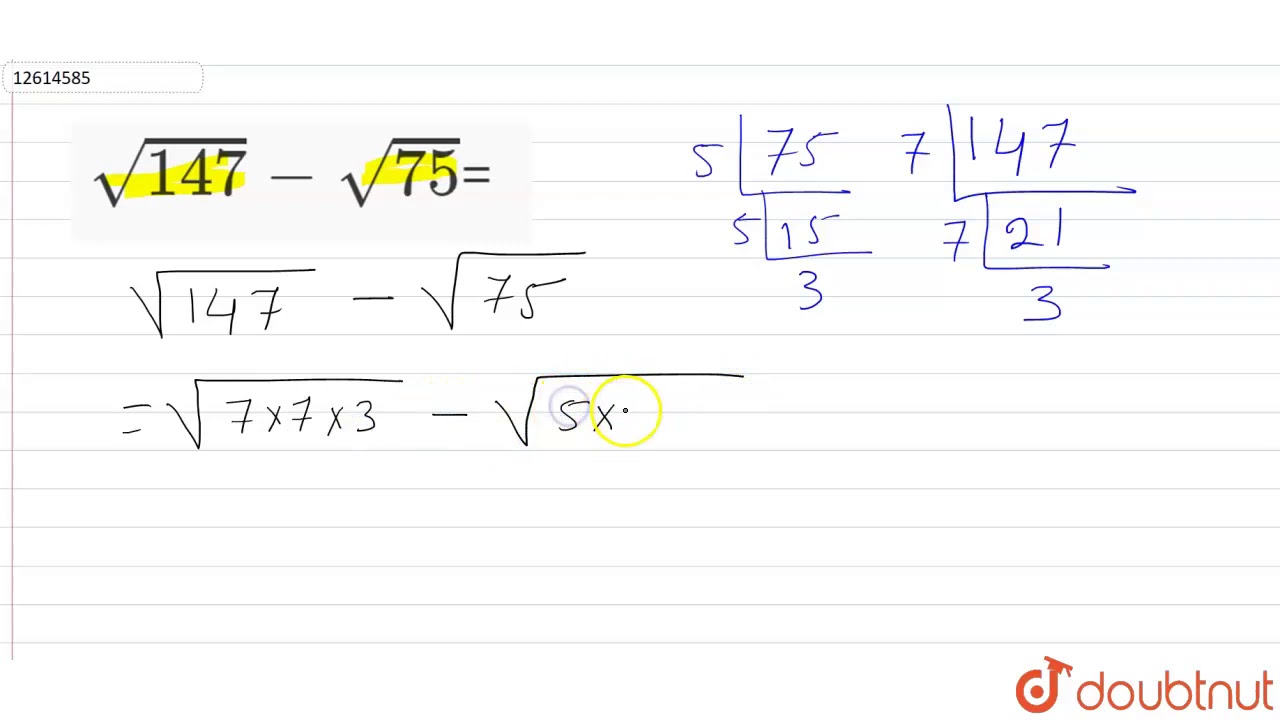 12614585
√147 − √75=
√147 − √75
= √7×7×3 − √5×
5 75
5 15
3
7 147
7 21
3
doubtnut